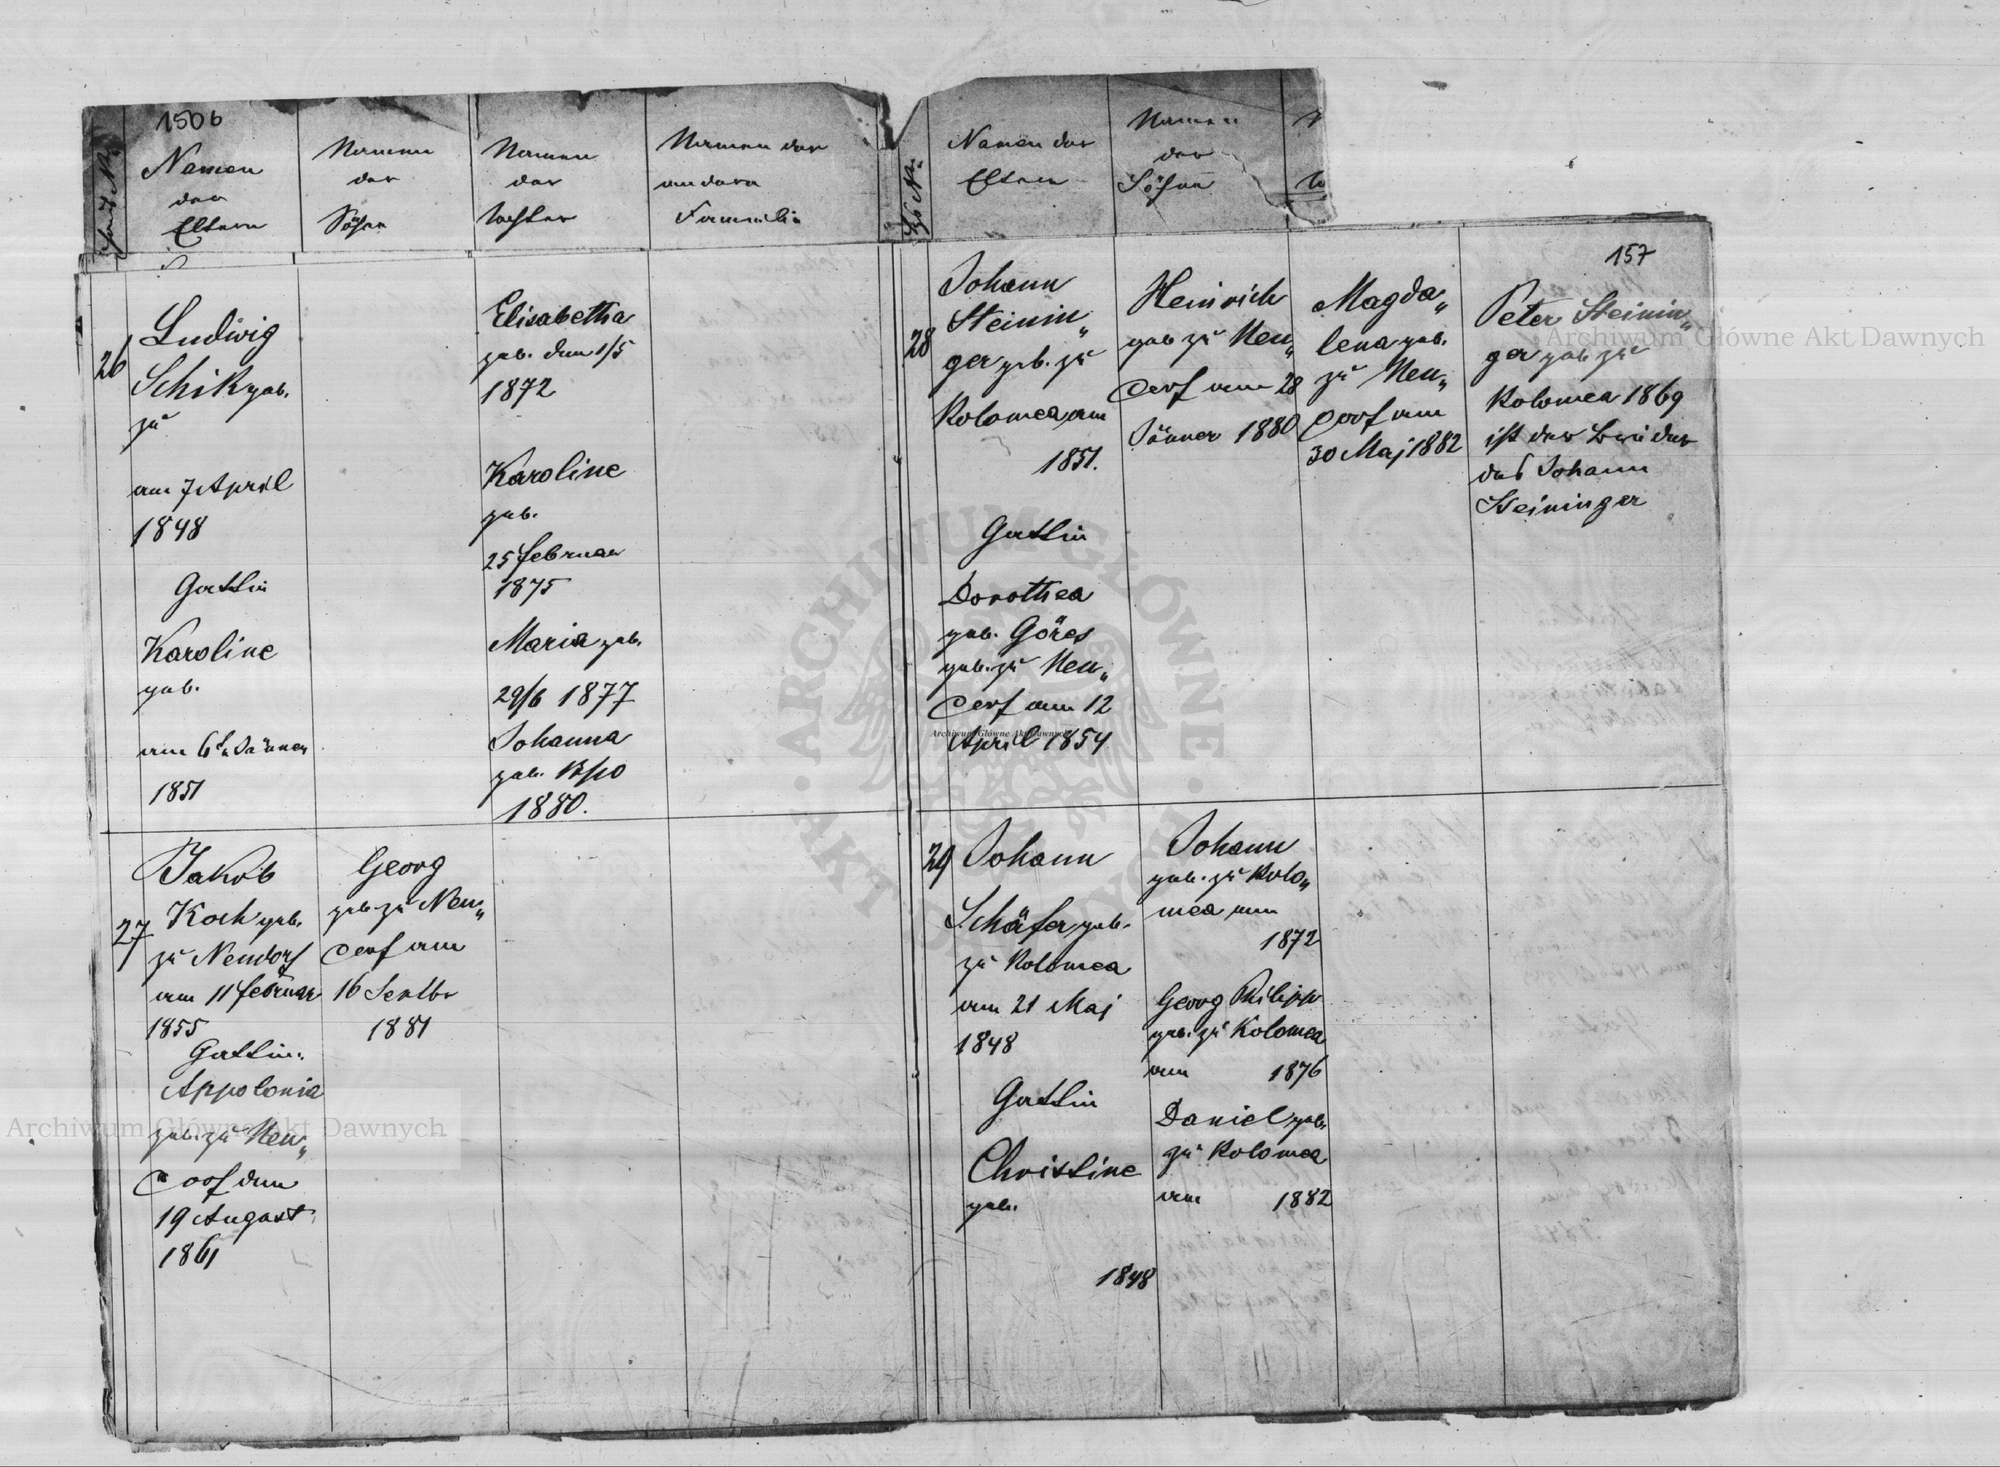 150b
Namen
der
Eltern
Namen
der
Söhne
Namen
der
Töchter
Namen der
andern
Familie
26
Ludwig
Schik geb.
zu
am 7 April
1848
Gattin
Karoline
geb.
am 6tn Jänner
1851
Elisabetha
geb. den 1/5
1872
Karoline
geb.
25 Februar
1875
Maria geb.
29/6 1877
Johanna
geb.
1880.
27
Jakob
Koch geb.
zu Neudorf
am 11 Februar
1855
Gattin:
Appolonia
geb. zu Neu„
dorf den
19 August
1861
Georg
geb. zu Neu„
dorf am
16 Septbr
1881
Namen der
Eltern
Namen
der
Söhne
157
28
Johann
Steinin„
ger geb. zu
Kolomea am
1851.
Gattin
Dorothea
geb. Göres
geb. zu Neu„
dorf am 12
April 1854
Heinrich
geb zu Neu„
dorf am 28
Jänner 1880
Magda„
lena geb.
zu Neu„
dorf am
30 Maj 1882
Peter Steinin„
ger geb zu
Kolomea 1869
ist der Bruder
des Johann
Steininger
29
Johann
Schäfer geb.
zu Kolomea
am 21 Maj
1848
Gattin
Christine
geb.
1848
Johann
geb. zu Kolo„
mea am
1872
Georg Philipp
geb. zu Kolomea
am 1876
Daniel geb.
zu Kolomea
am 1882
Archiwum Główne Akt Dawnych
Archiwum Główne Akt Dawnych
Archiwum Główne Akt Dawnych
ARCHIWUM GŁÓWNE
AKT